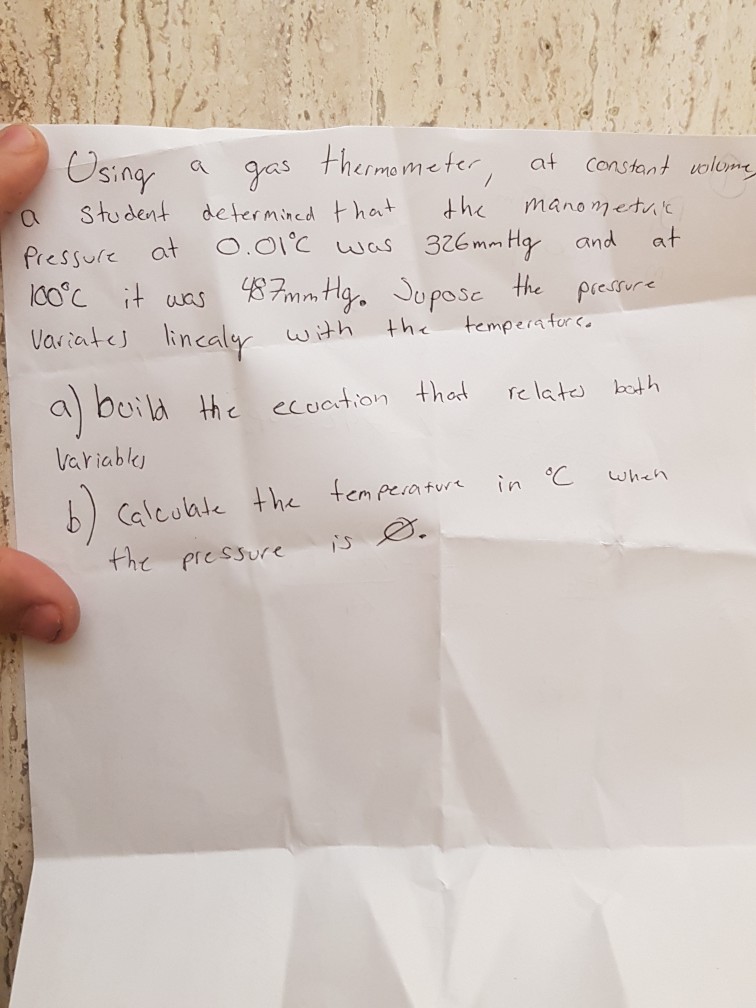 Using a gas thermometer, at constant volume,
a student determined that the manometric
Pressure at 0.01°C was 326mmHg and at
100°C it was 487mmHg. Supose the pressure
Variates linealy with the temperature.
a) build the ecuation that relates both
Variables
b) Calculate the temperature in °C when
the pressure is Ø.